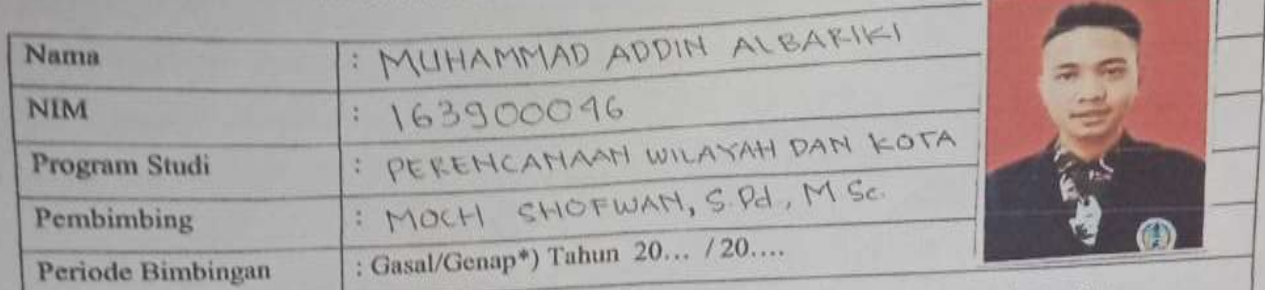 Nama : MUHAMMAD ADDIN ALBARIKI
NIM : 163900046
Program Studi : PERENCANAAN WILAYAH DAN KOTA
Pembimbing : MOCH SHOFWAN, S.Pd, M Sc.
Periode Bimbingan : Gasal/Genap*) Tahun 20... / 20....